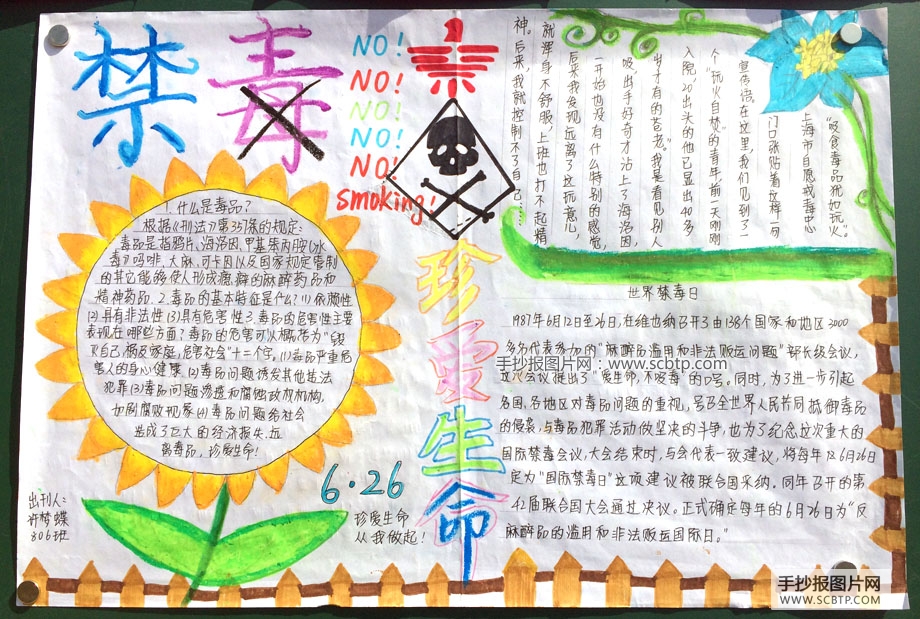 禁毒
NO!
NO!
NO!
NO!
NO!
smoking!
1.什么是毒品?
根据《刑法》第357条的规定:
毒品是指鸦片、海洛因、甲基苯丙胺(冰
毒)、吗啡、大麻、可卡因以及国家规定管制
的其它能够使人形成瘾癖的麻醉药品和
精神药品.2.毒品的基本特征是什么?(1)依赖性
(2)具有非法性(3)具有危害性3.毒品的危害性主要
表现在哪些方面?毒品的危害可以概括为“毁
灭自己,祸及家庭,危害社会”十二个字,(1)毒品严重危
害人的身心健康.(2)毒品问题诱发其他违法
犯罪(3)毒品问题渗透和腐蚀政权机构,
如剧腐败现象(4)毒品问题给社会
造成了巨大的经济损失.远
离毒品,珍爱生命!
珍爱生命
6·26
珍爱生命
从我做起!
出刊人:
许梦蝶
806班
“吸食毒品犹如玩火。”
上海市自愿戒毒中心
门口张贴着这样一句
宣传语.在这里,我们见到了一
个“玩火自焚”的青年,前一天刚刚
入院,20出头的他已显出40多
岁才有的苍老。“我是看见别人
吸,出于好奇才沾上了海洛因,
一开始也没有什么特别的感觉,
后来我发现远离了这玩意儿,
就浑身不舒服,上班也打不起精
神。后来,我就控制不了自己……
世界禁毒日
1987年6月12日至26日,在维也纳召开了由138个国家和地区3000
多名代表参加的“麻醉品滥用和非法贩运问题”部长级会议,
这次会议提出了“爱生命,不吸毒”的口号。同时,为了进一步引起
各国、各地区对毒品问题的重视,号召全世界人民共同抵御毒品
的侵袭,与毒品犯罪活动做坚决的斗争,也为了纪念这次重大的
国际禁毒会议,大会结束时,与会代表一致建议,将每年6月26日
定为“国际禁毒日”这项建议被联合国采纳.同年召开的第
42届联合国大会通过决议。正式确定每年的6月26日为“反
麻醉品的滥用和非法贩运国际日。
手抄报图片网
www.scbtp.com
手抄报图片网
WWW.SCBTP.COM